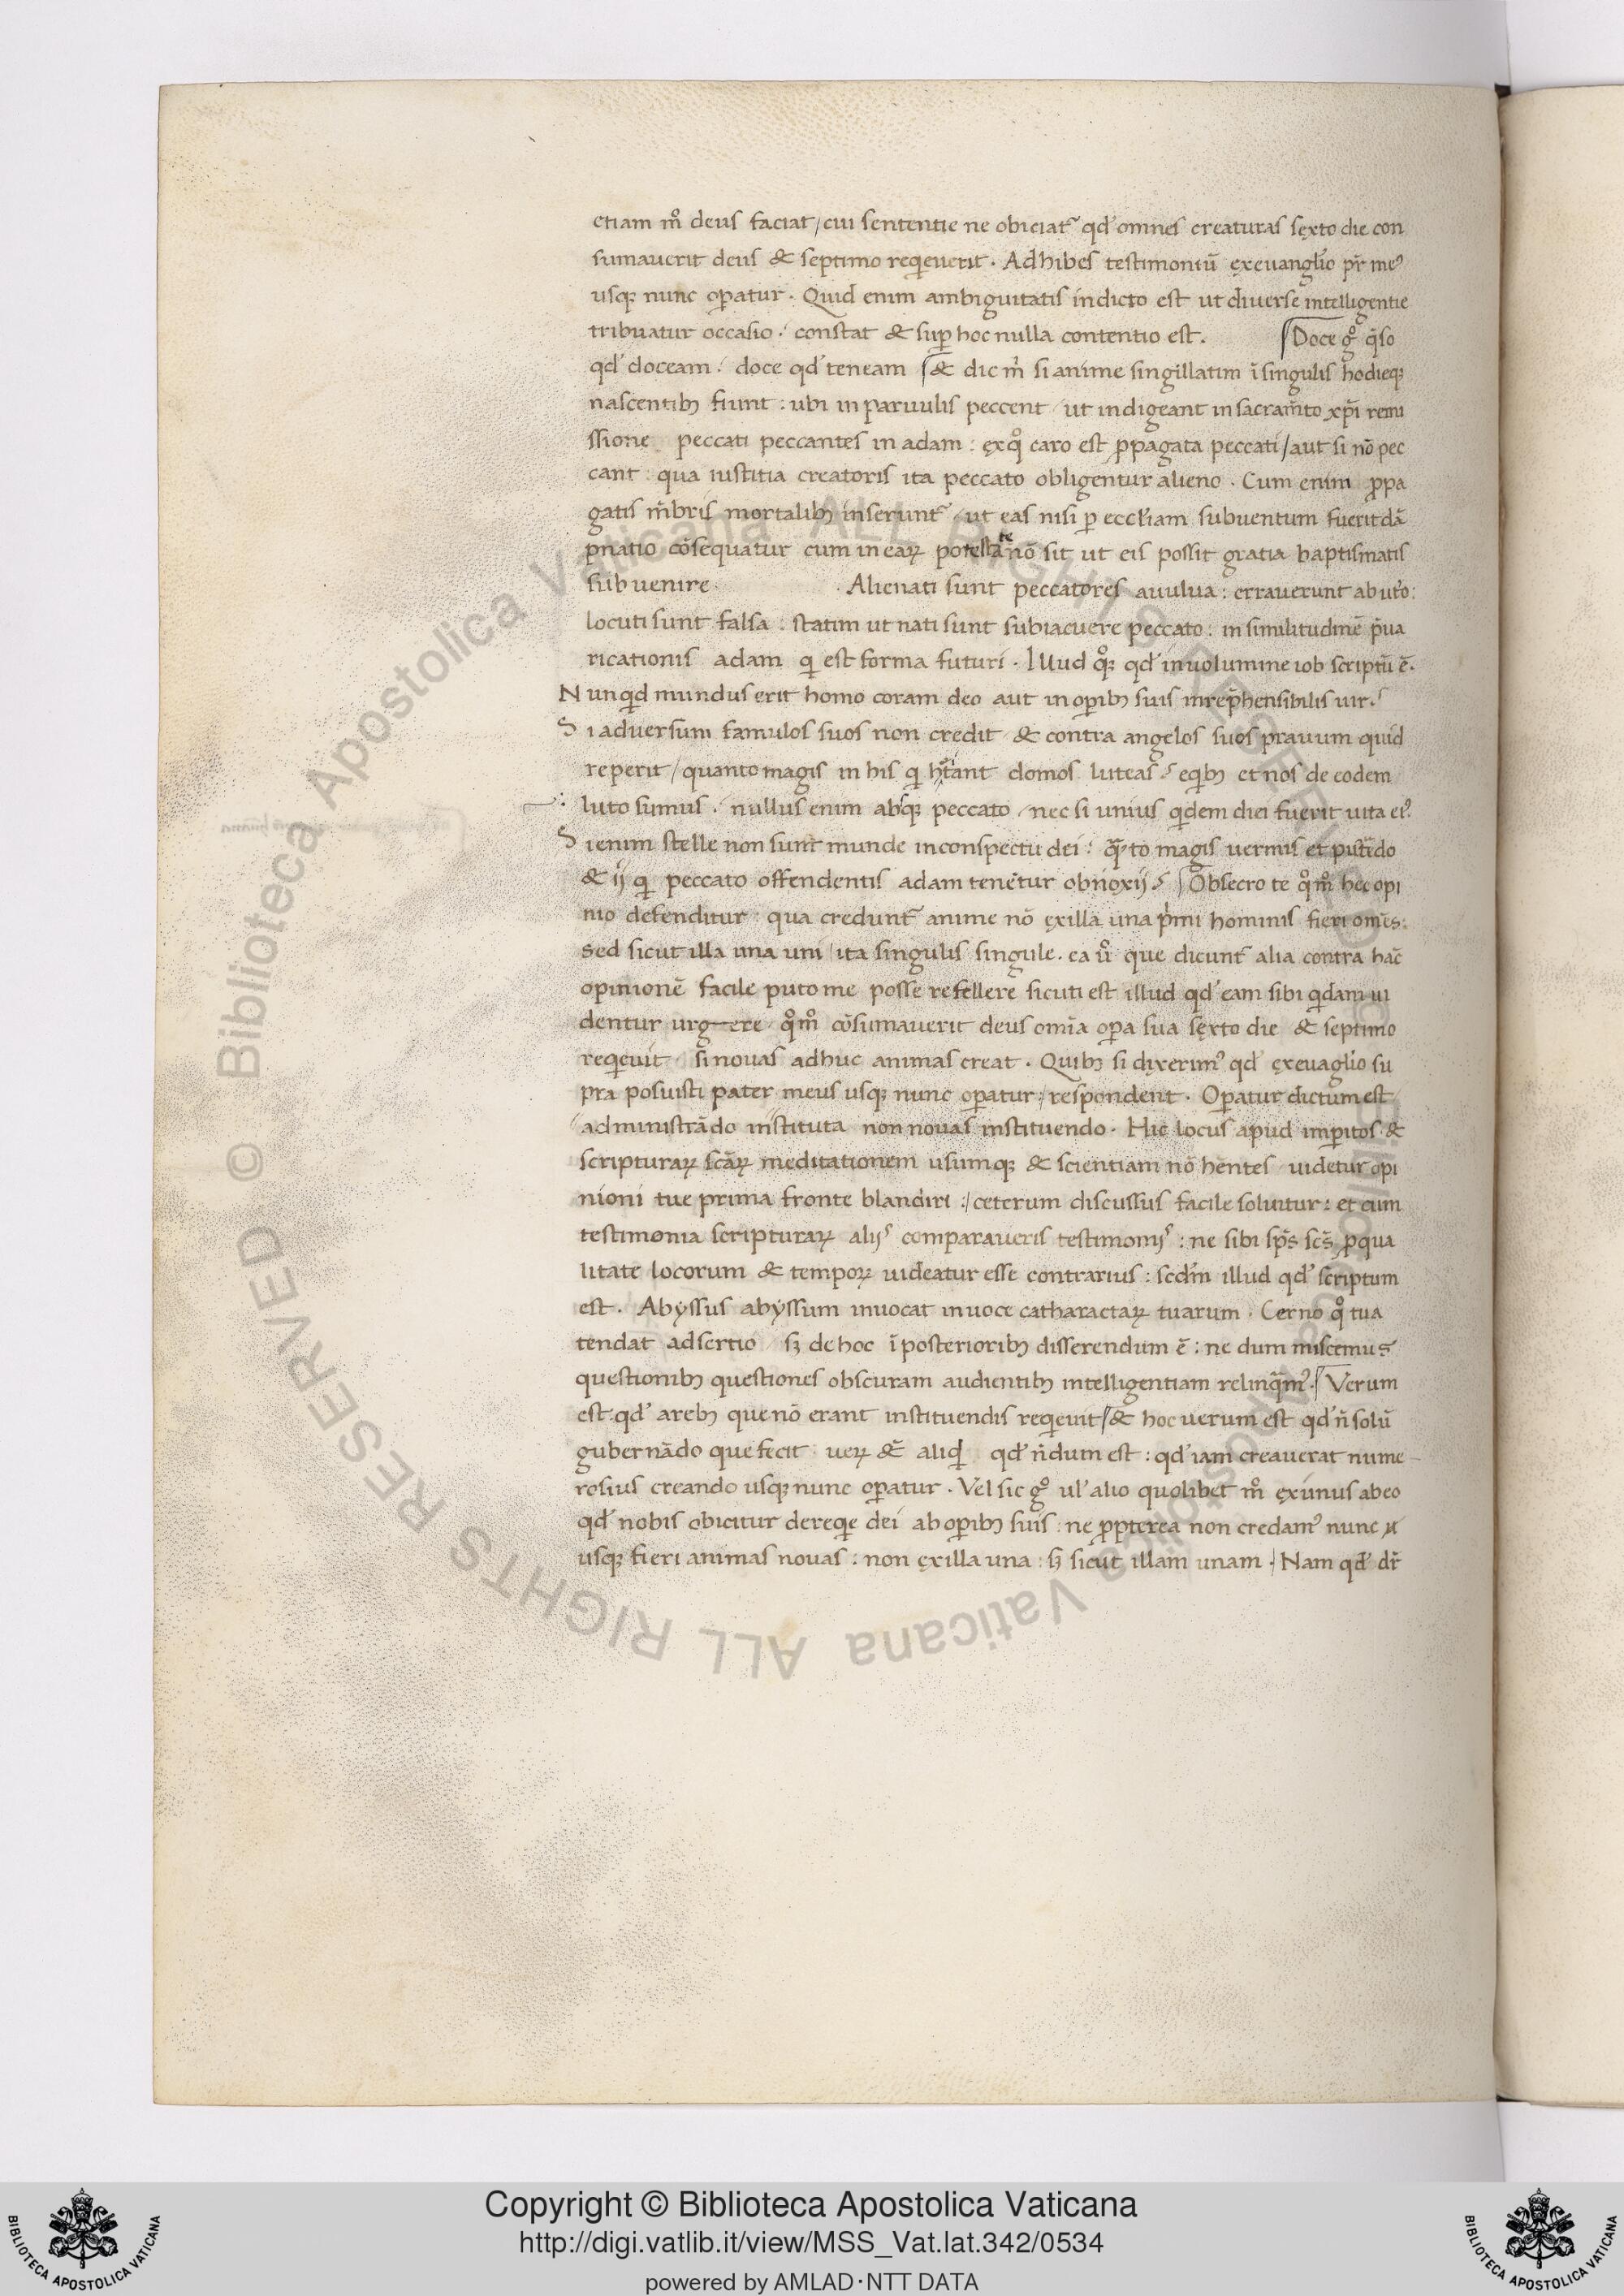 etiam m̊ deus faciat / cui sententie ne obiciat᷑ qd' omnes creaturas sęxto die con
sumauerit deus & septimo reqeuerit · Adhibes testimoniū ęxeuangl'io pr̄ meꝰ
usqꝫ nunc oꝑatur · Quid enim ambiguitatis indicto est ut diuerse intelligentie
tribuatur occasio · constat & suꝑ hoc nulla contentio est . Doce gͦ q̄so
qd' doceam : doce qd' teneam & dic m̓ si anime singillatim ī singulis hodieqꝫ
nascentibꝫ fiunt : ubi in paruulis peccent / ut indigeant in sacram̄to xp̄i remi
ssione peccati peccantes in adam : ęxqͦ caro est ꝓpagata peccati / aut si nō pec
cant : qua iustitia creatoris ita peccato obligentur alieno . Cum enim ꝓpa
gatis m̄bris mortalibꝫ inserunt᷑ / ut eas nisi ꝑ eccl'iam subuentum fuerit dā
pnatio cōsequatur cum in eaꝝ potestate nō sit ut eis possit gratia baptismatis
subuenire · · Alienati sunt peccatores auulua : errauerunt ab ut̓o :
locuti sunt falsa : statim ut nati sunt subiacuere peccato : in similitudinē p̄ua
ricationis adam q est forma futuri . Illud qͦꝫ qd' inuolumine iob scriptū ē .
Nunqd mundus erit homo coram deo aut in oꝑibꝫ suis inrep̄hensibilis uir .
Si aduersum famulos suos non credit / & contra angelos suos prauum quid
reperit / quanto magis in his q hītant domos luteas eqbꝫ et nos de eodem
luto sumus . nullus enim absqꝫ peccato / nec si unius qdem diei fuerit uita eiꝰ
Si enim stelle non sunt munde inconspectu dei : qᷓto magis uermis et putredo
& ij q peccato offendentis adam tenētur obnoxij Obsecro te qͦmͦ hec opi
nio defenditur : qua credunt᷑ anime nō ęxilla una p̓mi hominis fieri omēs :
sed sicut illa una uni / ita singulis singule . ea ůͦ que dicunt᷑ alia contra hāc
opinionē facile puto me posse refellere sicuti est illud qd' eam sibi qdam ui
dentur urgere / qͦmͦ cōsumauerit deus omīa oꝑa sua sęxto die & septimo
reqeuit / si nouas adhuc animas creat . Quibꝫ si dixerimꝰ qd' ęxeuāgl'io su
pra posuisti pater meus usqꝫ nunc oꝑatur : respondent . Oꝑatur dictum est
administrādo instituta non nouas instituendo . Hic locus apud imꝑitos &
scripturaꝝ scāꝝ meditationem usumqꝫ & scientiam nō hēntes / uidetur opi
nioni tue prima fronte blandiri : / ceterum discussus facile soluitur : et cum
testimonia scripturaꝝ alijˢ comparaueris testimonijˢ : ne sibi sp̄s sc̄s ꝓqua
litate locorum & tempoꝝ uideatur esse contrarius : scdm̄ illud qd' scriptum
est . Abyssus abyssum inuocat inuoce catharactaꝝ tuarum . Cerno qͦ tua
tendat adsertio / sꝫ de hoc ī posterioribꝫ disserendum ē : ne dum miscemus
questionibꝫ questiones obscuram audientibꝫ intelligentiam relinqᷓmꝰ . Verum
est qd' arebꝫ que nō erant instituendis reqeuit / & hoc uerum est qd' n̄ solū
gubernādo que fecit / ueꝝ &̄ aliqd qd' n̄dum est : qd' iam creauerat nume
rosius creando usqꝫ nunc oꝑatur . Vel sic gͦ ul' alio quolibet m̊ ęxunus abeo
qd' nobis obicitur dereqe dei ab oꝑibꝫ suis : ne ꝓpterea non credamꝰ nunc
usqꝫ fieri animas nouas : non ęxilla una : sꝫ sicut illam unam . Nam qd' dr̄
Copyright © Biblioteca Apostolica Vaticana
http://digi.vatlib.it/view/MSS_Vat.lat.342/0534
powered by AMLAD·NTT DATA